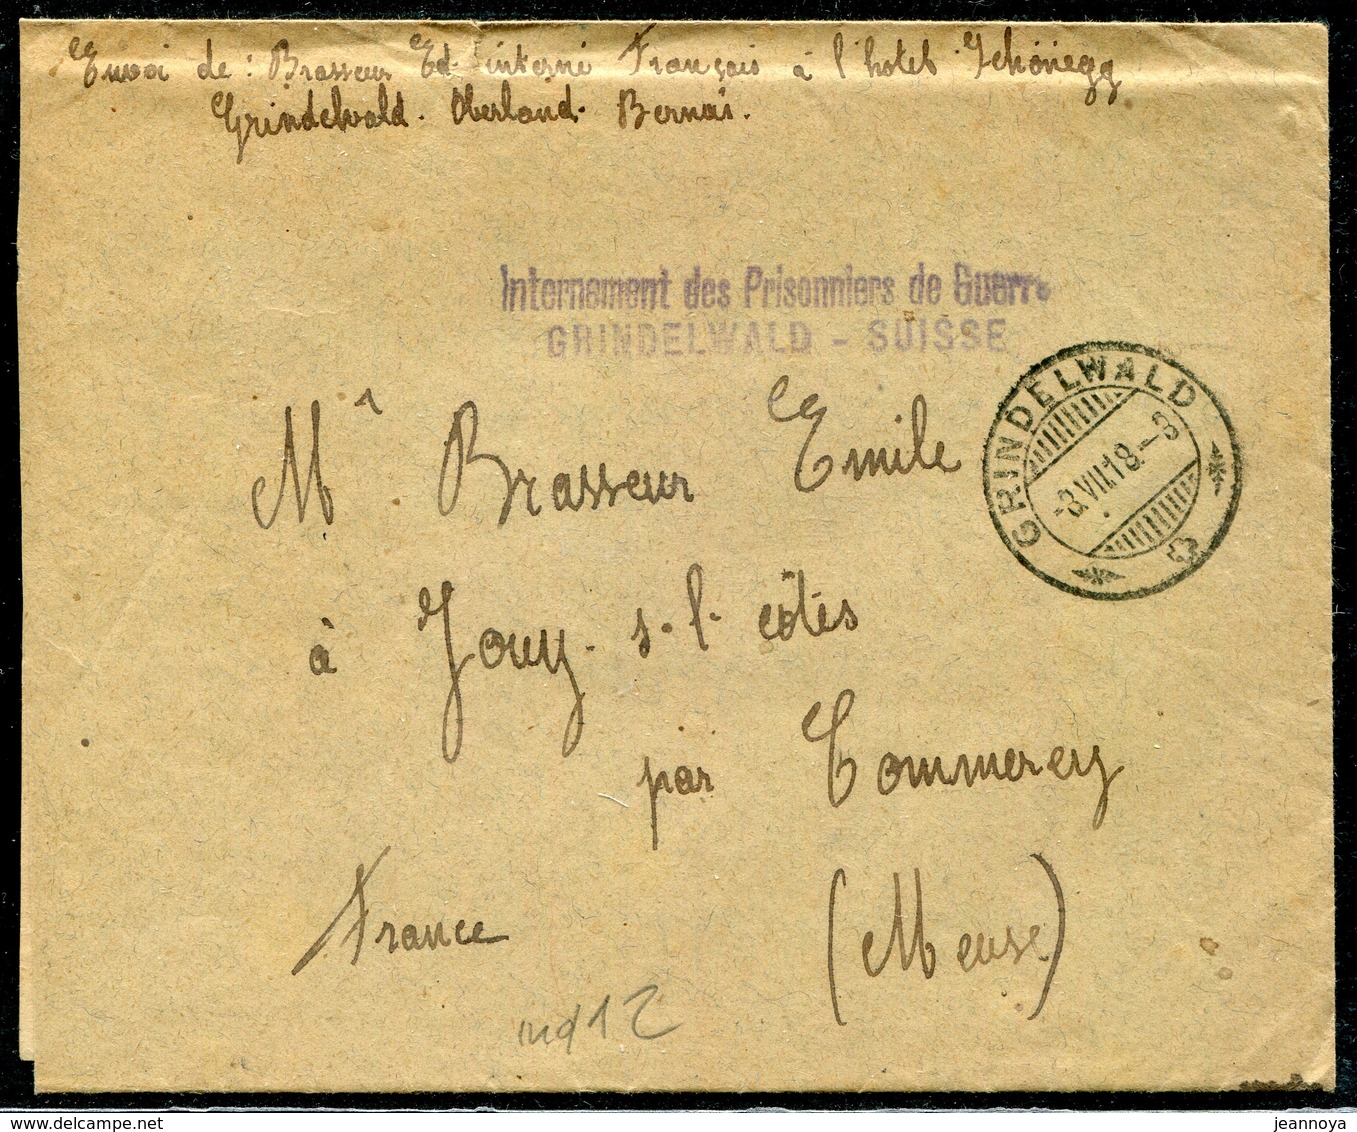 Envoi de : Brasseur Ed. interné Français à l'hotel Schönegg
Grindelwald. Oberland. Bernois.
Internement des Prisonniers de Guerre
GRINDELWALD - SUISSE
GRINDELWALD
-8.VII.18.-8
Mr Brasseur Emile
à Jouy. s.l. côtes
par Commercy
France (Meuse)
ind 12
delcampe.net
jeannoya